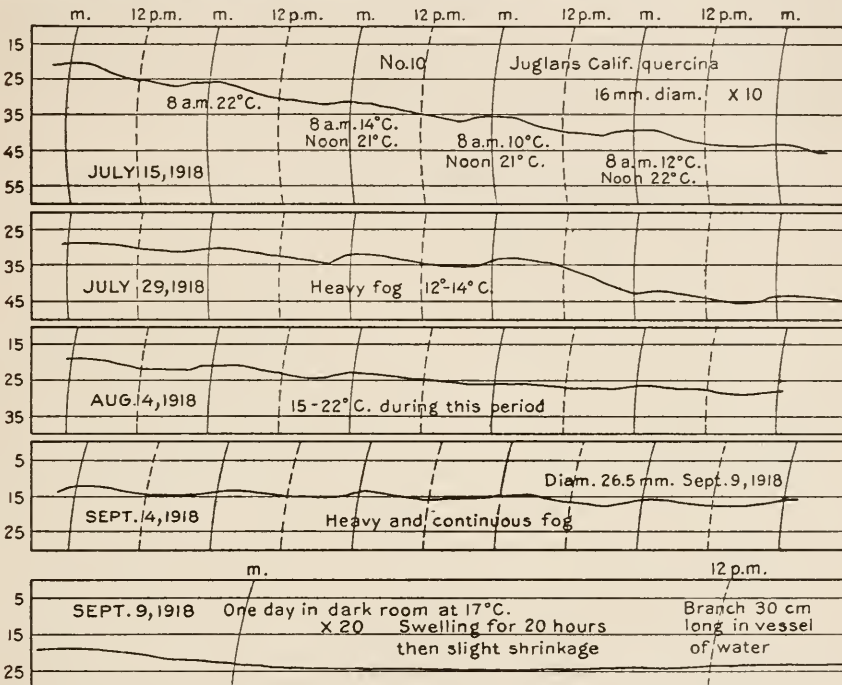 m. 12 p.m. m. 12 p.m. m. 12 p.m. m. 12 p.m. m. 12 p.m. m.
15
25
35
45
55
No.10 Juglans Calif. quercina
16 mm. diam. X 10
8 a.m. 22°C.
8 a.m. 14°C.
Noon 21°C.
8 a.m. 10°C.
Noon 21°C.
8 a.m. 12°C.
Noon 22°C.
JULY 15, 1918
25
35
45
JULY 29, 1918 Heavy fog 12°-14°C.
15
25
35
AUG. 14, 1918 15-22°C. during this period
5
15
25
Diam. 26.5 mm. Sept. 9, 1918
SEPT. 14, 1918 Heavy and continuous fog
m. 12 p.m.
5
15
25
SEPT. 9, 1918 One day in dark room at 17°C.
X 20 Swelling for 20 hours
then slight shrinkage
Branch 30 cm
long in vessel
of water